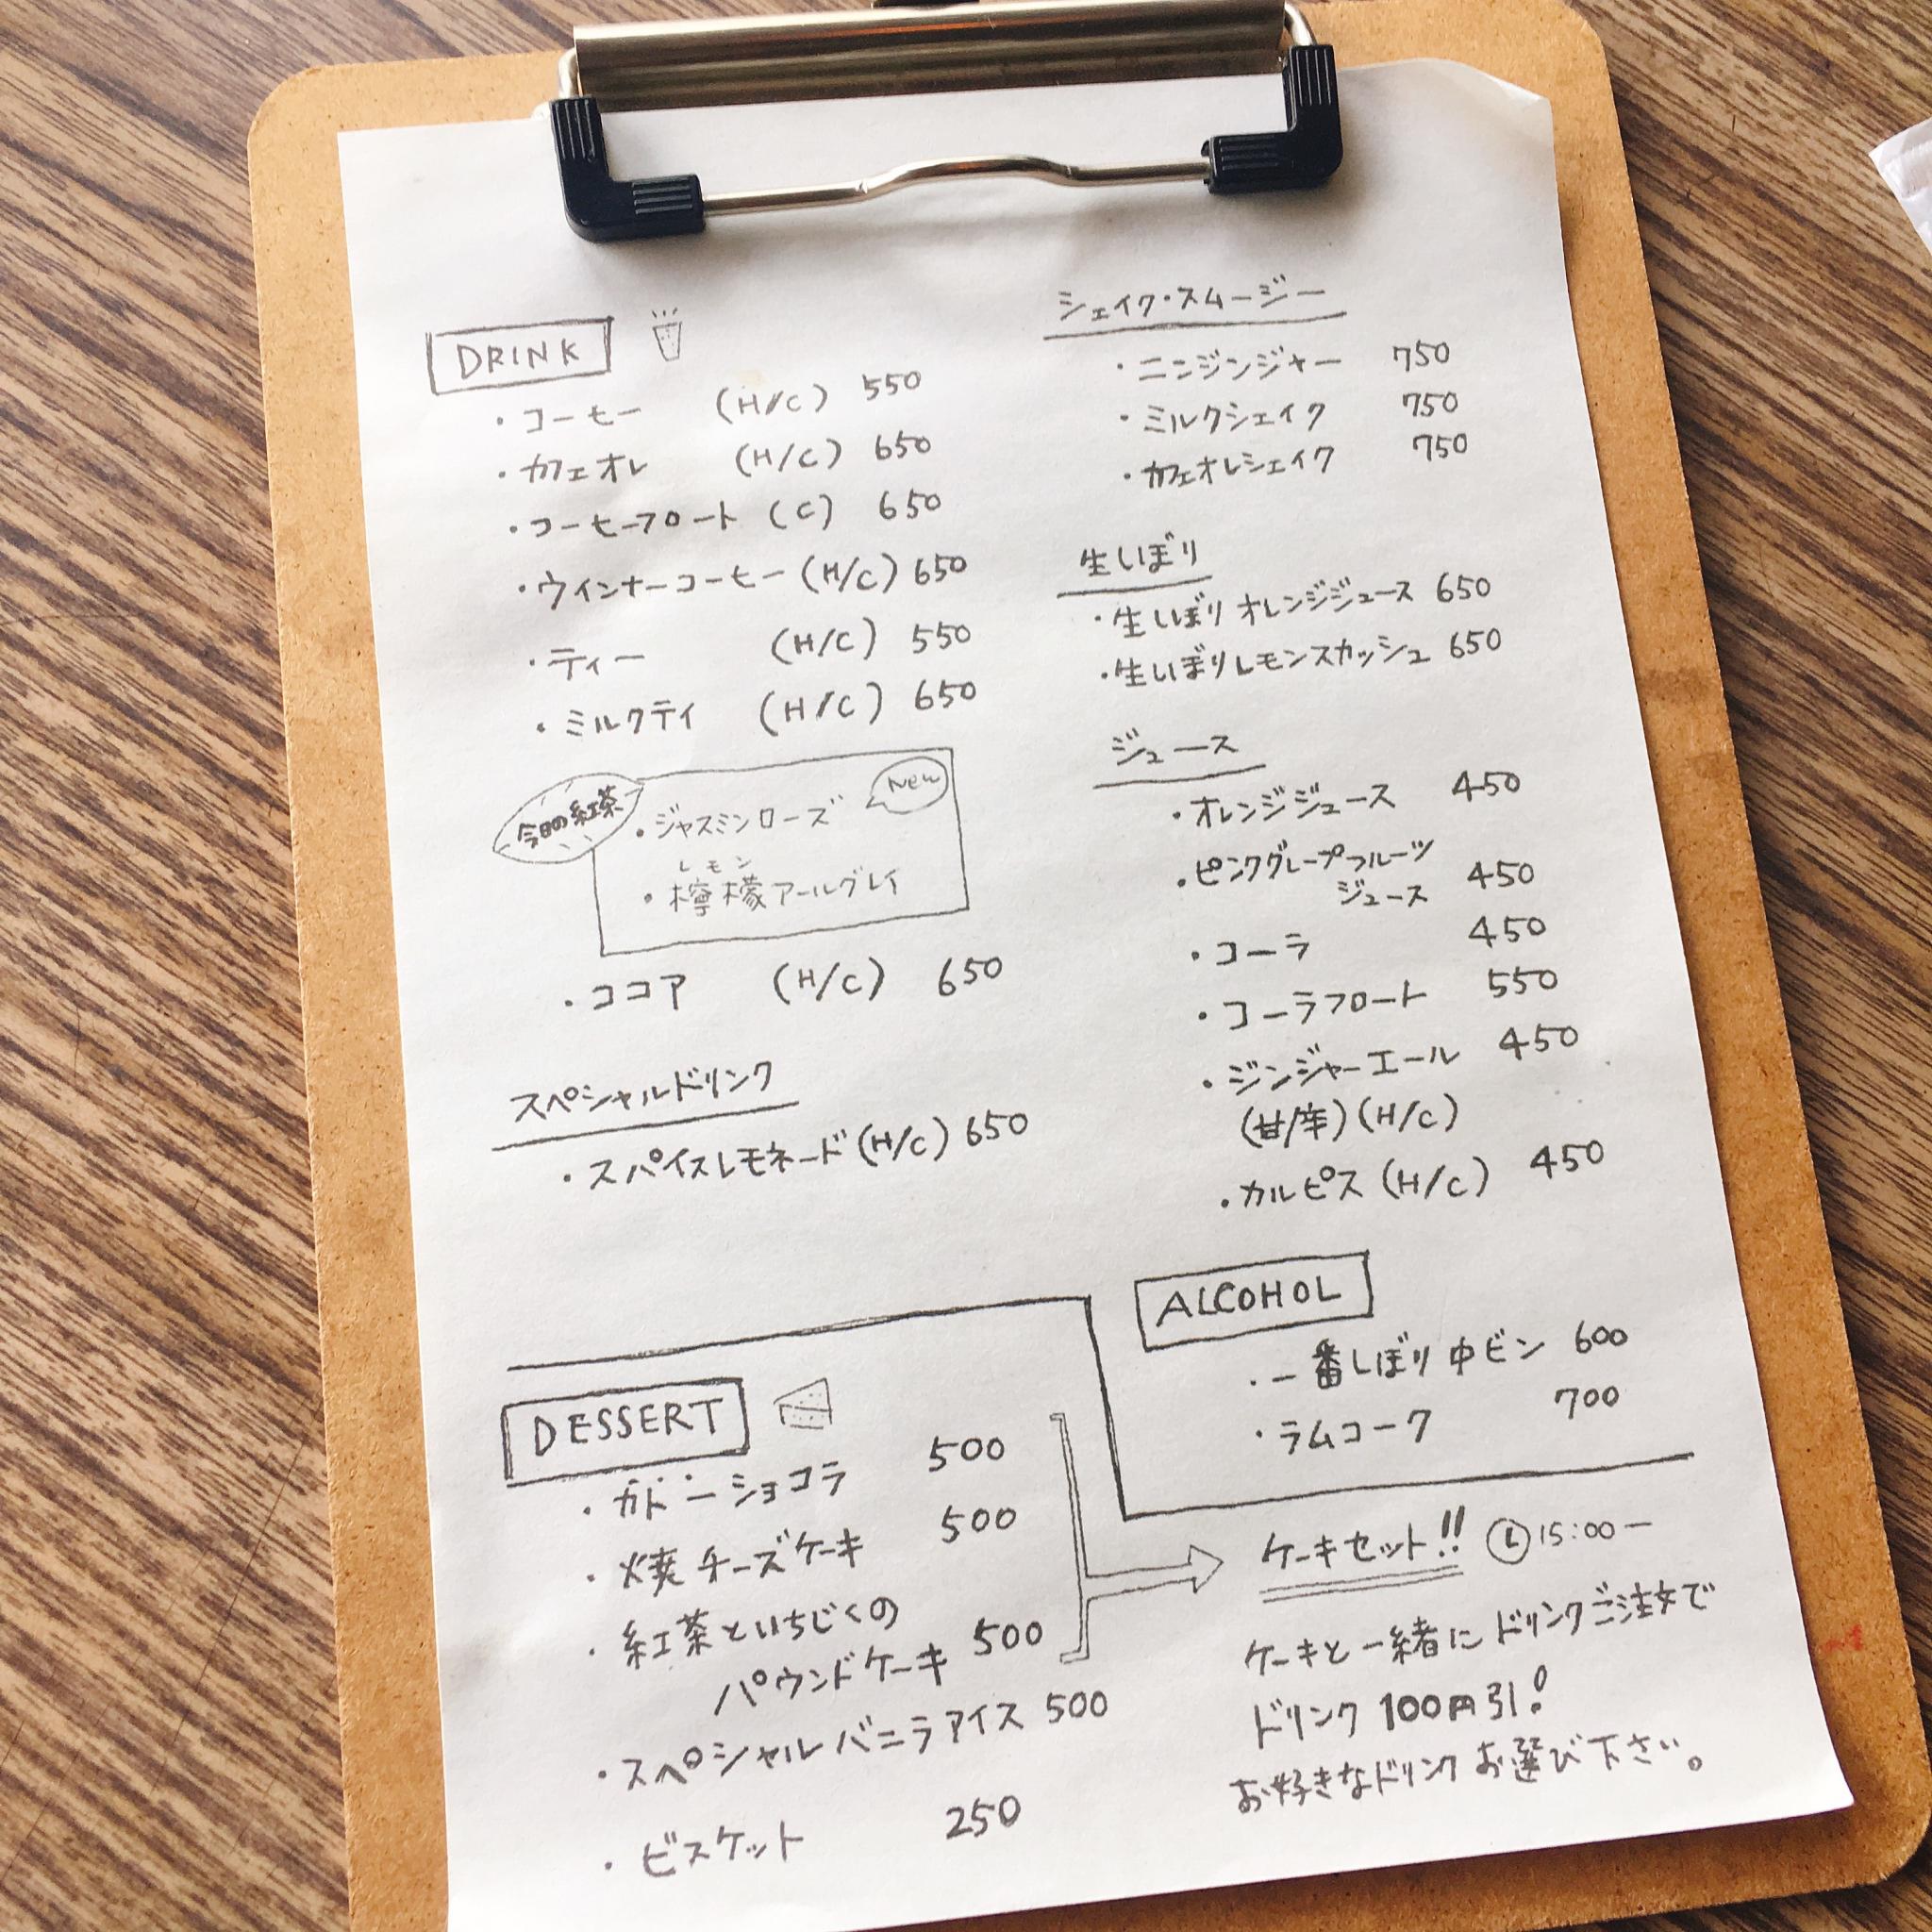 DRINK
・コーヒー (H/C) 550
・カフェオレ (H/C) 650
・コーヒーフロート (C) 650
・ウインナーコーヒー (H/C) 650
・ティー (H/C) 550
・ミルクティ (H/C) 650
今日の紅茶
・ジャスミンローズ
New
レモン
・檸檬アールグレイ
・ココア (H/C) 650
スペシャルドリンク
・スパイスレモネード (H/C) 650
シェイク・スムージー
・ニンジンジャー 750
・ミルクシェイク 750
・カフェオレシェイク 750
生しぼり
・生しぼりオレンジジュース 650
・生しぼりレモンスカッシュ 650
ジュース
・オレンジジュース 450
・ピンクグレープフルーツ
ジュース 450
・コーラ 450
・コーラフロート 550
・ジンジャーエール 450
(甘/辛) (H/C)
・カルピス (H/C) 450
ALCOHOL
・一番しぼり 中ビン 600
・ラムコーク 700
DESSERT
・ガトーショコラ 500
・焼チーズケーキ 500
・紅茶といちじくの
パウンドケーキ 500
・スペシャルバニラアイス 500
・ビスケット 250
ケーキセット!! 15:00ー
ケーキと一緒にドリンクご注文で
ドリンク100円引!
お好きなドリンクお選び下さい。